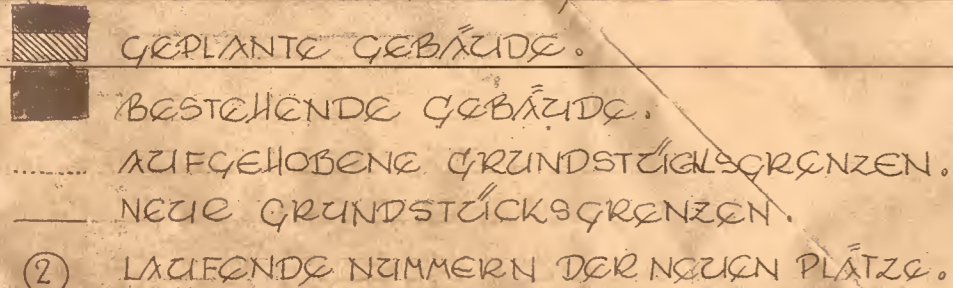 GEPLANTE GEBÄUDE.
BESTEHENDE GEBÄUDE.
AUFGEHOBENE GRUNDSTÜCKSGRENZEN.
NEUE GRUNDSTÜCKSGRENZEN.
2 LAUFENDE NUMMERN DER NEUEN PLÄTZE.